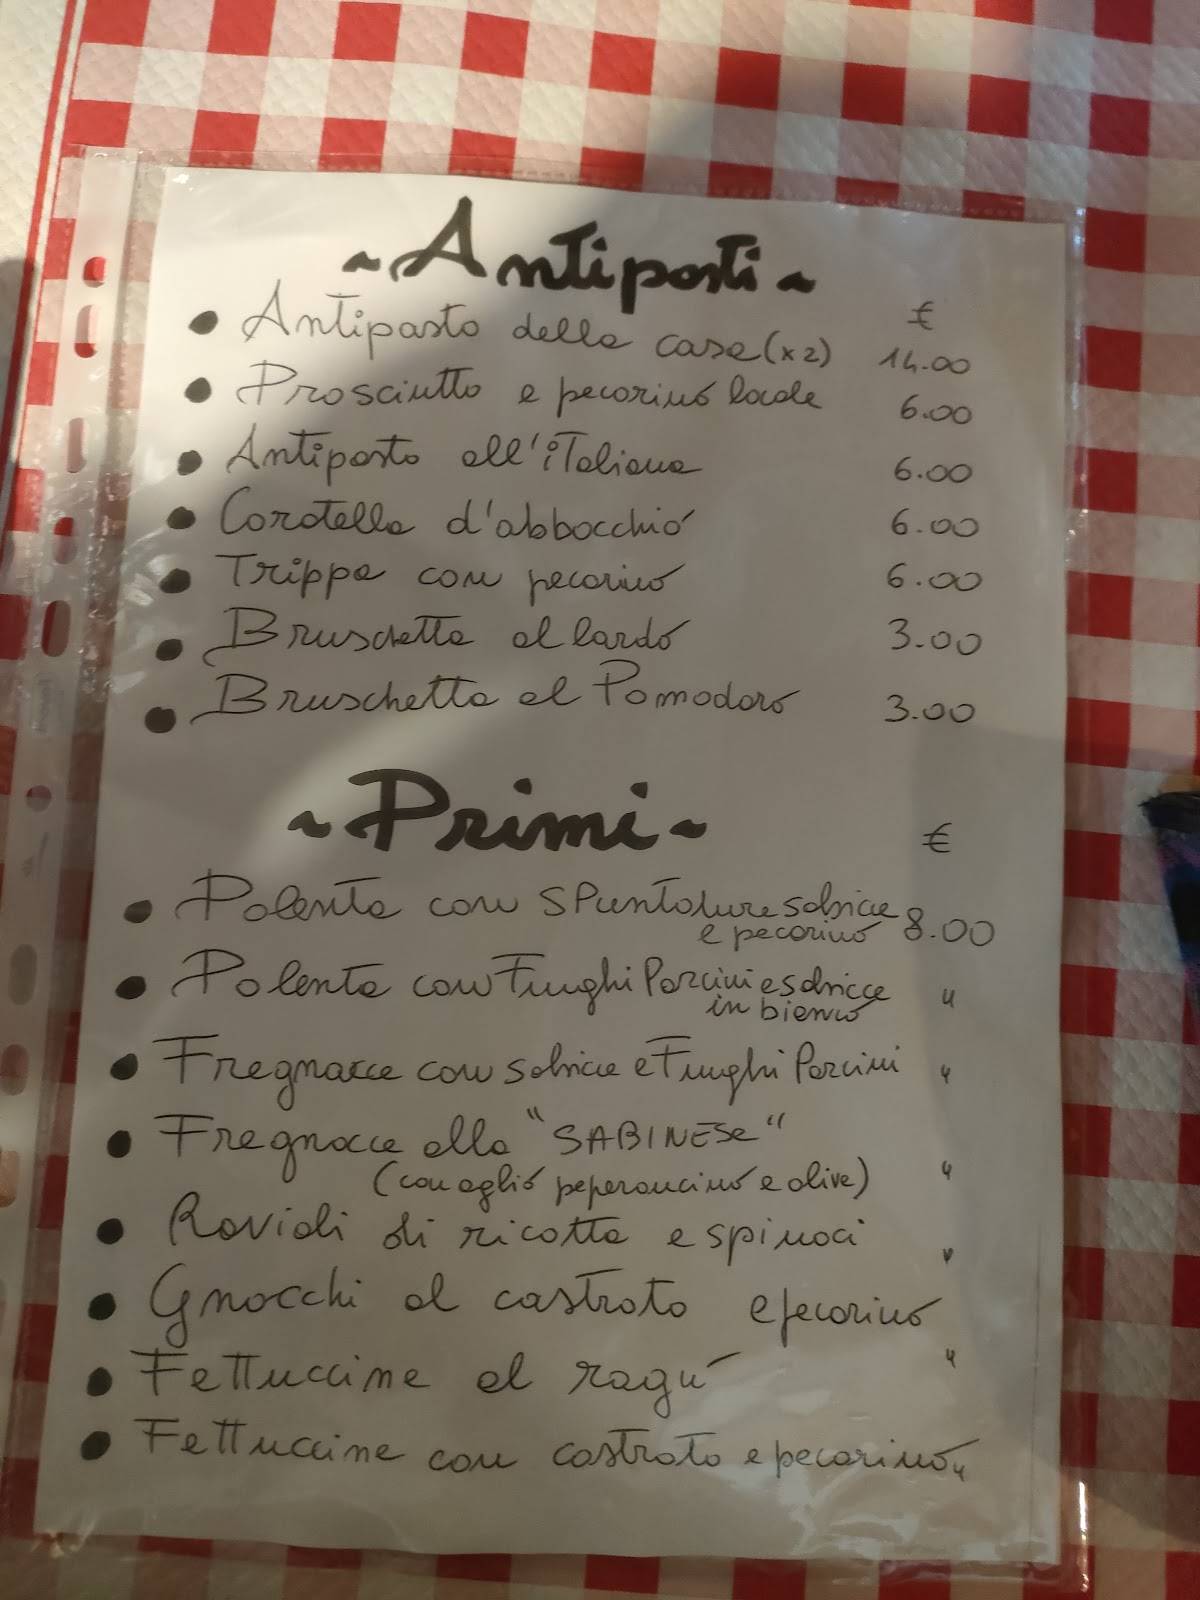 ~Antipasti~
€
Antipasto della casa (x2) 14.00
Prosciutto e pecorino locale 6.00
Antipasto all'italiana 6.00
Coratella d'abbocchio 6.00
Trippa con pecorino 6.00
Bruschetta al lardo 3.00
Bruschetta al Pomodoro 3.00
~Primi~
€
Polenta con spuntature salsicce
e pecorino 8.00
Polenta con Funghi Porcini e salsicce "
in bianco
Fregnacce con salsicce e Funghi Porcini "
Fregnacce alla "SABINESE"
(con aglio peperoncino e olive) "
Ravioli di ricotta e spinaci "
Gnocchi al castrato e pecorino
Fettuccine al ragù "
Fettuccine con castrato e pecorino "